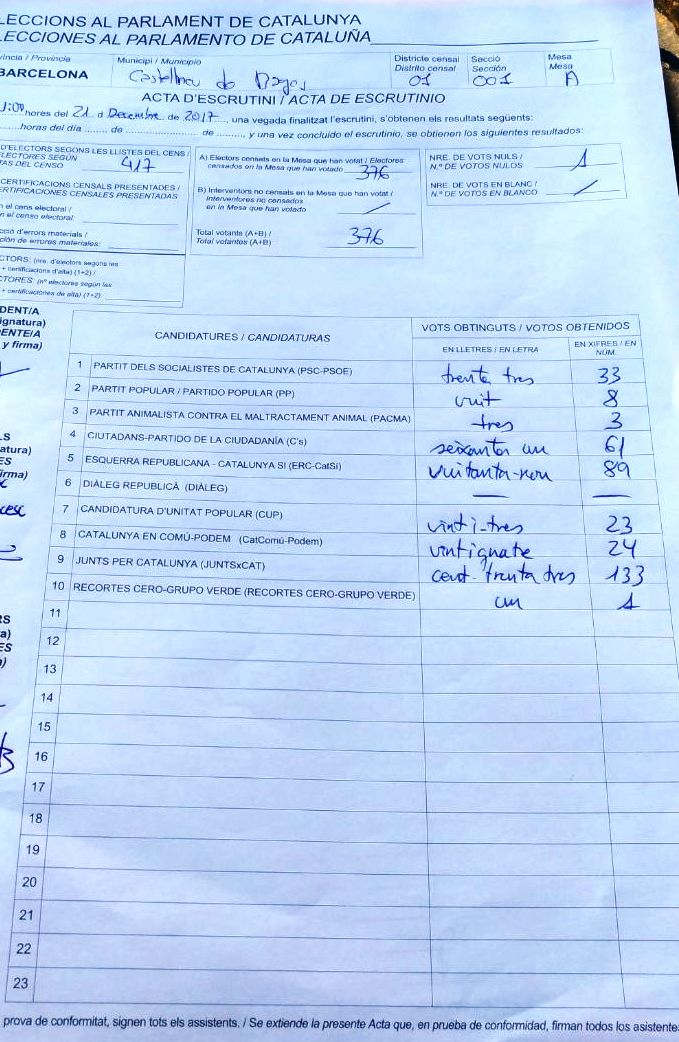 LECCIONS AL PARLAMENT DE CATALUNYA
LECCIONES AL PARLAMENTO DE CATALUÑA
víncia / Provincia
BARCELONA
Municipi / Municipio
Castellnou de Bages
Districte censal
Distrito censal
01
Secció
Sección
001
Mesa
Mesa
A
ACTA D'ESCRUTINI / ACTA DE ESCRUTINIO
1:00 hores del 21 d Decembre de 2017, una vegada finalitzat l'escrutini, s'obtenen els resultats següents:
horas del día ........ de ........ de ........, y una vez concluido el escrutinio, se obtienen los siguientes resultados:
D'ELECTORS SEGONS LES LLISTES DEL CENS /
ELECTORES SEGÚN
TAS DEL CENSO
417
CERTIFICACIONS CENSALS PRESENTADES /
ERTIFICACIONES CENSALES PRESENTADAS
n el cens electoral /
n el censo electoral:
ció d'errors materials /
ción de errores materiales:
CTORS: (nre. d'electors segons les
+ certificacions d'alta) (1+2) /
CTORES: (nº electores según las
+ certificaciones de alta) (1+2)
A) Electors censats en la Mesa que han votat / Electores
censados en la Mesa que han votado 376
B) Interventors no censats en la Mesa que han votat /
Interventores no censados
en la Mesa que han votado
Total votants (A+B) /
Total votantes (A+B) 376
NRE. DE VOTS NULS /
N.º DE VOTOS NULOS 1
NRE. DE VOTS EN BLANC /
N.º DE VOTOS EN BLANCO
DENT/A
ignatura)
ENTE/A
y firma)
CANDIDATURES / CANDIDATURAS
VOTS OBTINGUTS / VOTOS OBTENIDOS
EN LLETRES / EN LETRA
EN XIFRES / EN NÚM.
1 PARTIT DELS SOCIALISTES DE CATALUNYA (PSC-PSOE) trenta tres 33
2 PARTIT POPULAR / PARTIDO POPULAR (PP) vuit 8
3 PARTIT ANIMALISTA CONTRA EL MALTRACTAMENT ANIMAL (PACMA) tres 3
4 CIUTADANS-PARTIDO DE LA CIUDADANÍA (C's) seixanta un 61
5 ESQUERRA REPUBLICANA - CATALUNYA SÍ (ERC-CatSí) vuitanta-nou 89
6 DIÀLEG REPUBLICÀ (DIÀLEG) — —
7 CANDIDATURA D'UNITAT POPULAR (CUP) vint-i-tres 23
8 CATALUNYA EN COMÚ-PODEM (CatComú-Podem) vintiquatre 24
9 JUNTS PER CATALUNYA (JUNTSxCAT) cent-trenta tres 133
10 RECORTES CERO-GRUPO VERDE (RECORTES CERO-GRUPO VERDE) un 1
11
12
13
14
15
16
17
18
19
20
21
22
23
prova de conformitat, signen tots els assistents. / Se extiende la presente Acta que, en prueba de conformidad, firman todos los asistente